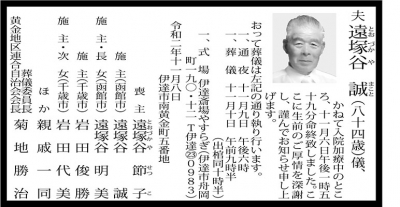 夫 遠塚谷 誠(八十四歳)儀
とおつかや まこと
かねて入院加療中のと
ころ、十一月六日午後一時五
十九分命終致しました。こ
こに生前のご厚情を深謝
し、謹んでお知らせ申し上
げます。
おって葬儀は左記の通り執り行います。
一、通夜 十一月九日 午後六時
一、葬儀 十一月十日 午前九時半
(出棺同十時半)
一、式場 伊達斎場やすらぎ(伊達市舟岡
町一九〇ノ十二 T伊達㉓0983)
令和二年十一月八日
伊達市南黄金町五番地
喪主 遠塚谷 節子
とおつかや せつこ
施主(函館市) 遠塚谷
遠塚谷 明美
施主(千歳市) 岩田 俊勝
施主・次女(千歳市) 岩田 代美
ほか 親戚一同
葬儀委員長
黄金地区連合自治会会長 菊地 勝治